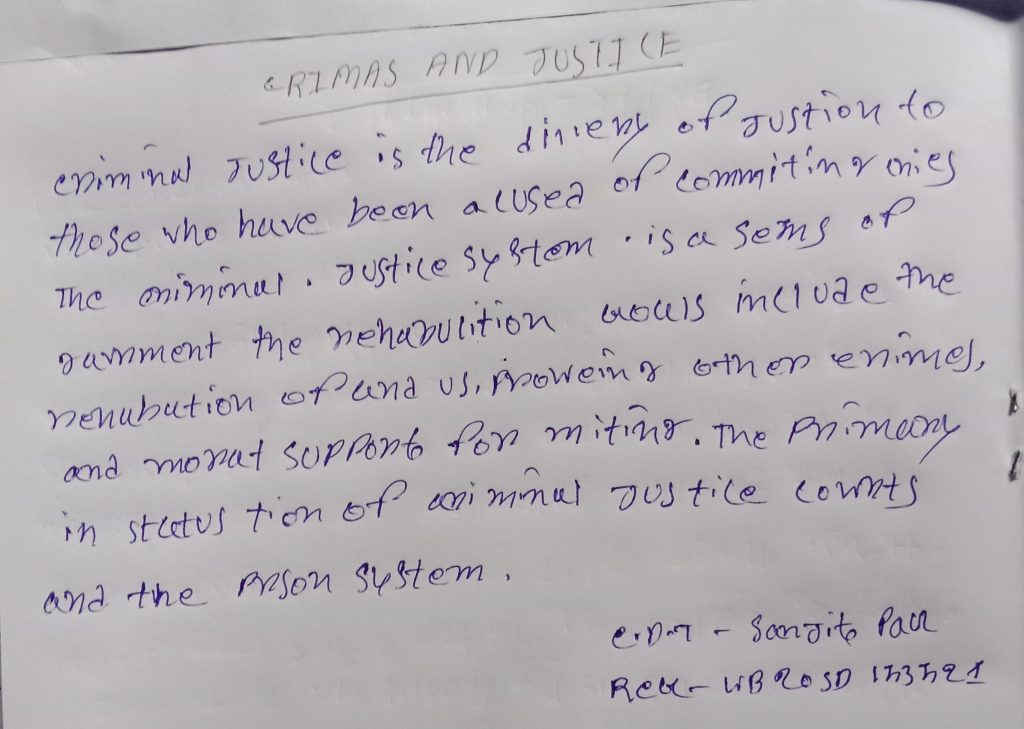 CRIMAS AND JUSTICE
criminal Justice is the diviery of Justion to
those who have been acused of commiting cries
The criminal. Justice system. is a sems of
garnment the rehabulition include the
renubution of and us, other crimes,
and morat support for miting. The Primeary
in status tion of criminal Justice courts
and the Prison system.
C.D.T - Sanjito Paul
WB20SD